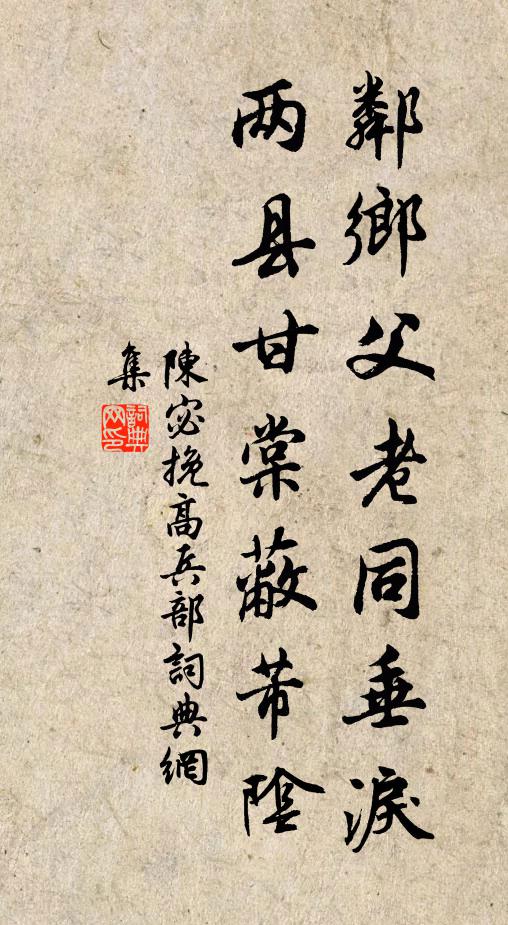 鄰鄉父老同垂淚
两县甘棠蔽芾陰
陳宓挽高兵部詞典網
集
詞典網印